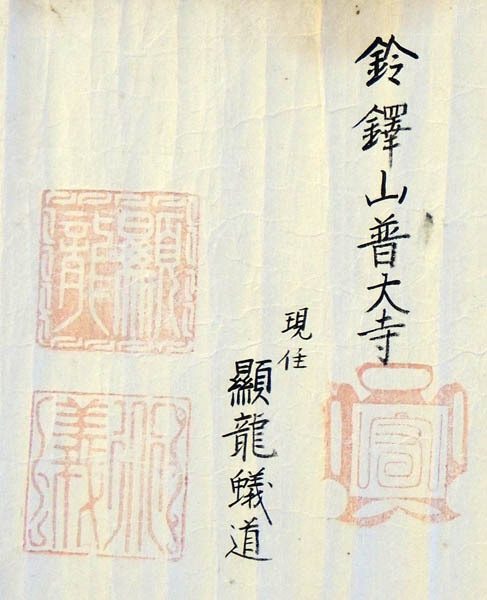 鈴鐸山普大寺
現住
顯龍蟻道
顯龍